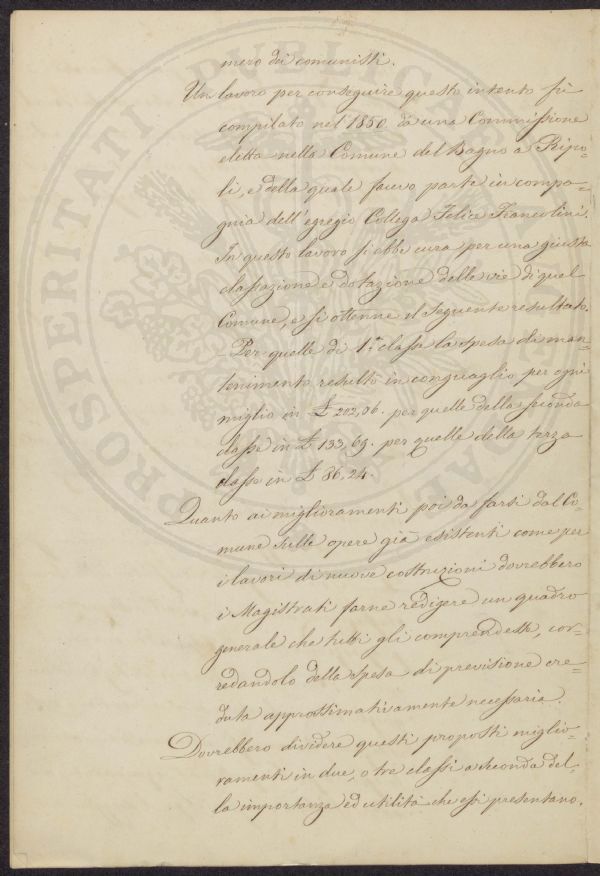 mero dei comunisti.
Un lavoro per conseguire questo intento fù
compilato nel 1850 da una Commissione
eletta nella Comune del Bagno a Ripo=
li, e della quale faceo parte in compa=
gnia dell'egregio Collega Felice Francolini.
In questo lavoro si ebbe cura per una giusta
classazione e dotazione delle vie di quel
Comune, e si ottenne il seguente resultato.
- Per quelle di 1.ma classe la spesa di man=
tenimento resultò in conguaglio per ogni
miglio in £ 202,06. per quelle della seconda
classe in £ 133,69. per quelle della terza
classe in £ 86,24.
Quanto ai miglioramenti poi da farsi dal Co=
mune sulle opere già esistenti come per
i lavori di nuove costruzioni dovrebbero
i Magistrati farne redigere un quadro
generale che tutti gli comprendesse, cor=
redandolo della spesa di previsione cre=
duta approssimativamente necessaria.
Dovrebbero dividere questi proposti miglio=
ramenti in due, o tre classi a seconda del=
la importanza ed utilità che essi presentano.
PROSPERITATI PVBLICAE